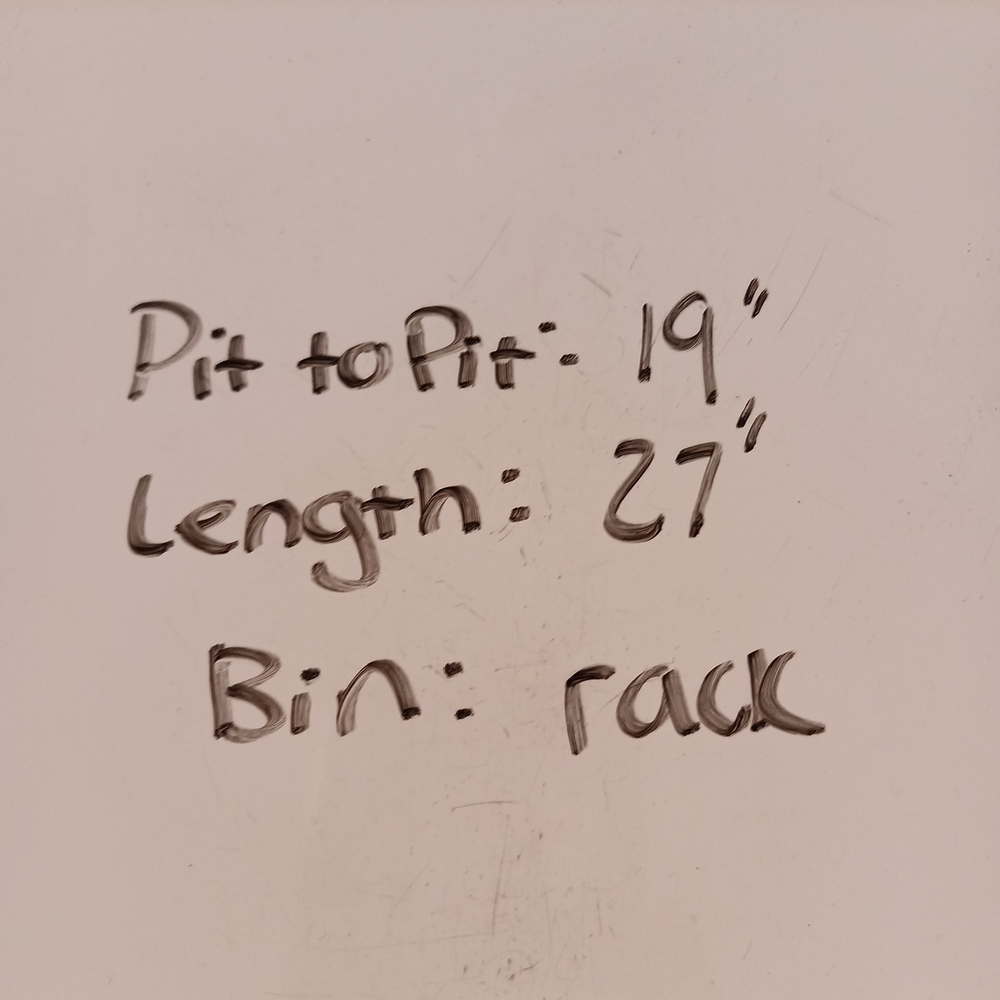 Pit to Pit: 19"
Length: 27"
Bin: rack